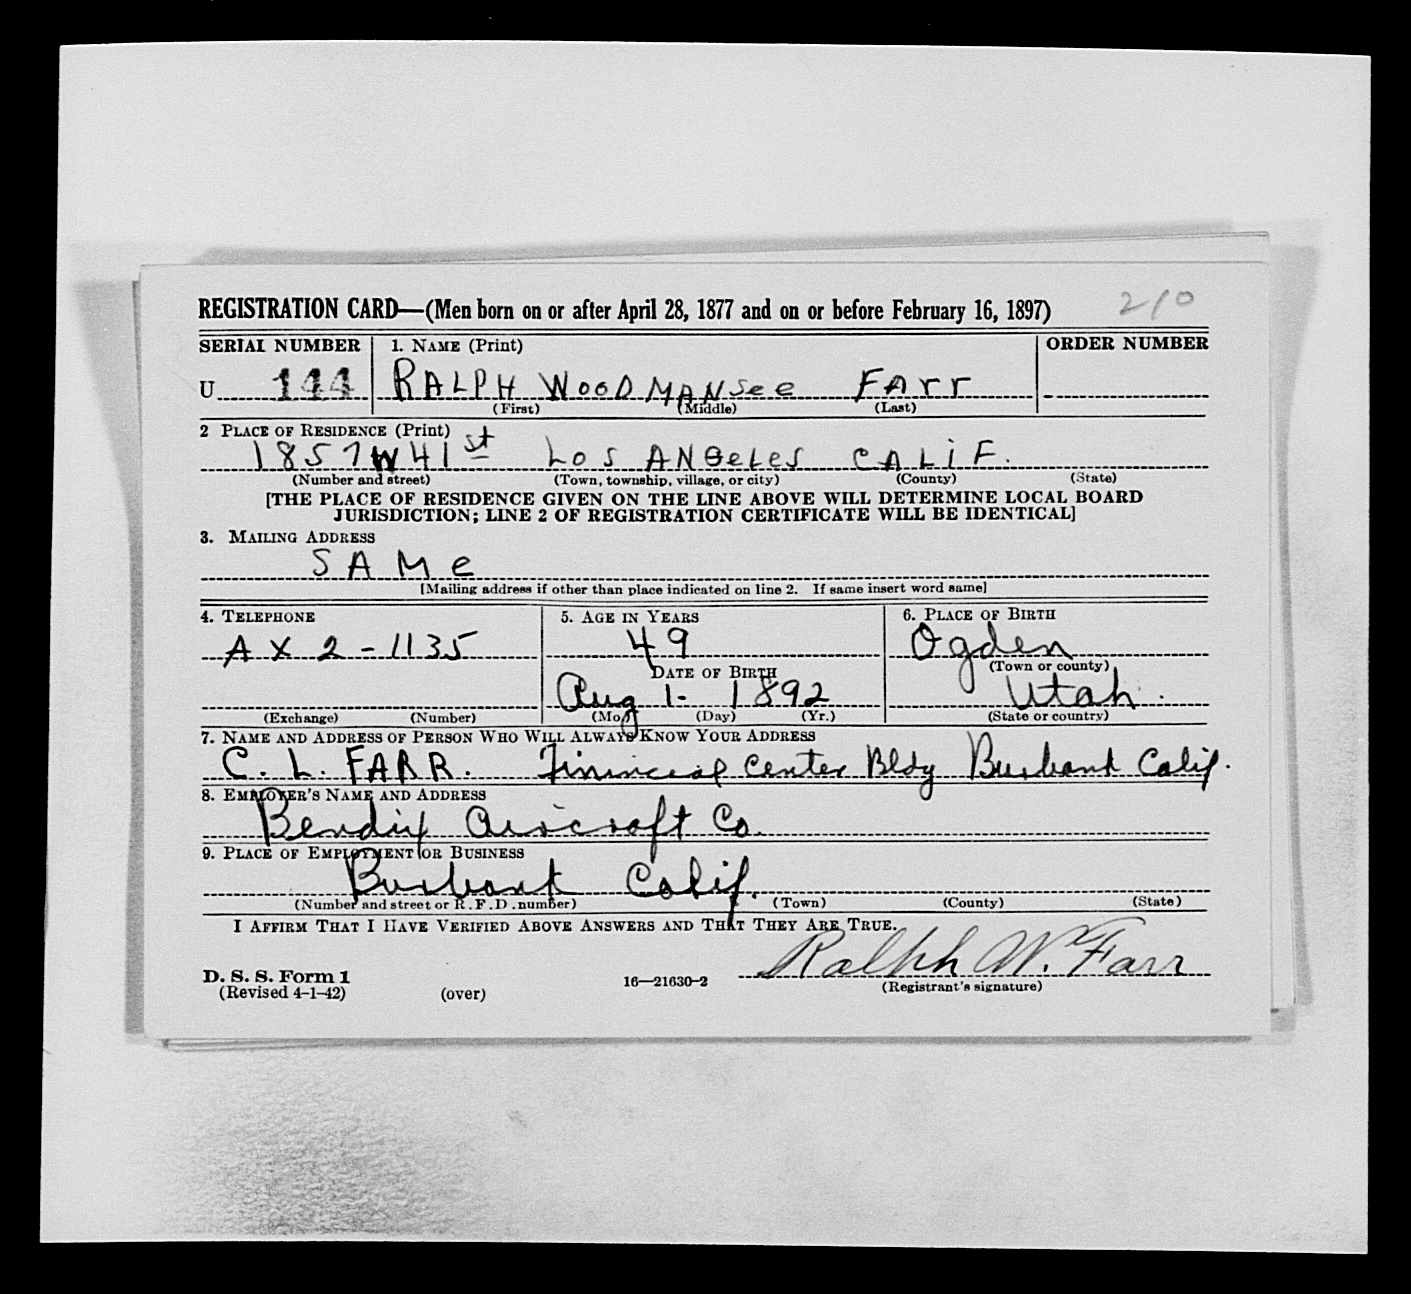 REGISTRATION CARD—(Men born on or after April 28, 1877 and on or before February 16, 1897) 210
SERIAL NUMBER 1. NAME (Print) ORDER NUMBER
U 144 RALPH WOODMANSee FArr
(First) (Middle) (Last)
2 PLACE OF RESIDENCE (Print)
1857 W 41st Los ANGeLes CALiF.
(Number and street) (Town, township, village, or city) (County) (State)
[THE PLACE OF RESIDENCE GIVEN ON THE LINE ABOVE WILL DETERMINE LOCAL BOARD
JURISDICTION; LINE 2 OF REGISTRATION CERTIFICATE WILL BE IDENTICAL]
3. MAILING ADDRESS
SAMe
[Mailing address if other than place indicated on line 2. If same insert word same]
4. TELEPHONE 5. AGE IN YEARS 6. PLACE OF BIRTH
AX 2-1135 49 Ogden
DATE OF BIRTH (Town or county)
Aug 1- 1892 Utah.
(Exchange) (Number) (Mo.) (Day) (Yr.) (State or country)
7. NAME AND ADDRESS OF PERSON WHO WILL ALWAYS KNOW YOUR ADDRESS
C. L. FARR. Finincial Center Bldg Burbank Calif.
8. EMPLOYER'S NAME AND ADDRESS
Bendix Aircraft Co.
9. PLACE OF EMPLOYMENT OR BUSINESS
Burbank Calif.
(Number and street or R.F.D. number) (Town) (County) (State)
I AFFIRM THAT I HAVE VERIFIED ABOVE ANSWERS AND THAT THEY ARE TRUE.
Ralph W. Farr
D. S. S. Form 1 16—21630-2 (Registrant's signature)
(Revised 4-1-42) (over)